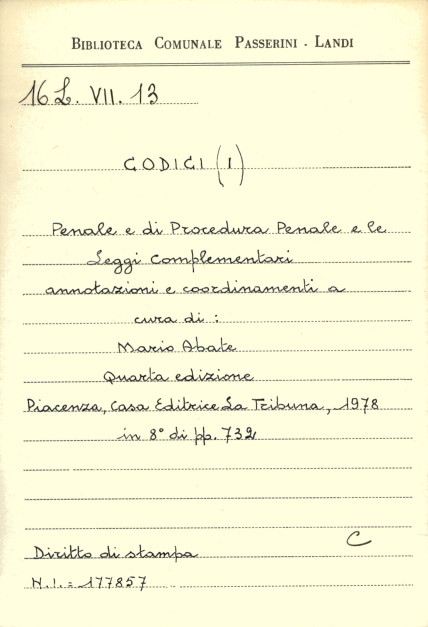 BIBLIOTECA COMUNALE PASSERINI - LANDI
16 L. VII. 13
CODICI (I)
Penale e di Procedura Penale e le
Leggi Complementari
annotazioni e coordinamenti a
cura di :
Mario Abate
Quarta edizione
Piacenza, Casa Editrice La Tribuna, 1978
in 8° di pp. 732
C
Diritto di stampa
N.I. = 177857